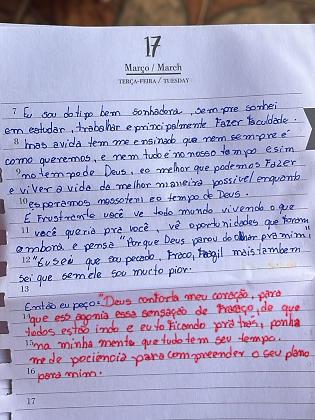 17
Março / March
TERÇA-FEIRA / TUESDAY
7 Eu sou do tipo bem sonhadora, sempre sonhei
em estudar, trabalhar e principalmente Fazer faculdade.
8 mas a vida tem me ensinado que nem sempre é
como queremos, e nem tudo é no nosso tempo e sim
9 no tempo de Deus, eo melhor que podemos Fazer
e viver a vida da melhor maneira possivel enquanto
10 esperamos nosso tem eo tempo de Deus.
É Frustrante você ve todo mundo vivendo o que
11 você queria pra você, vê oportunidades que foram
embora e pensa "Porque Deus parou de olhar pra mim"
12 "Eu sei que sou pecado, Fraco, Fragil mais tambem
sei que sem ele sou muito pior.
13
Então eu peço: "Deus conforta meu coração, para
que essa agonia essa sensação de fracaço, de que
todos estão indo e eu to ficando pra trás, ponha
15 na minha mente que tudo tem seu tempo.
me de paciência para compreender o seu plano
16 para mim.
17